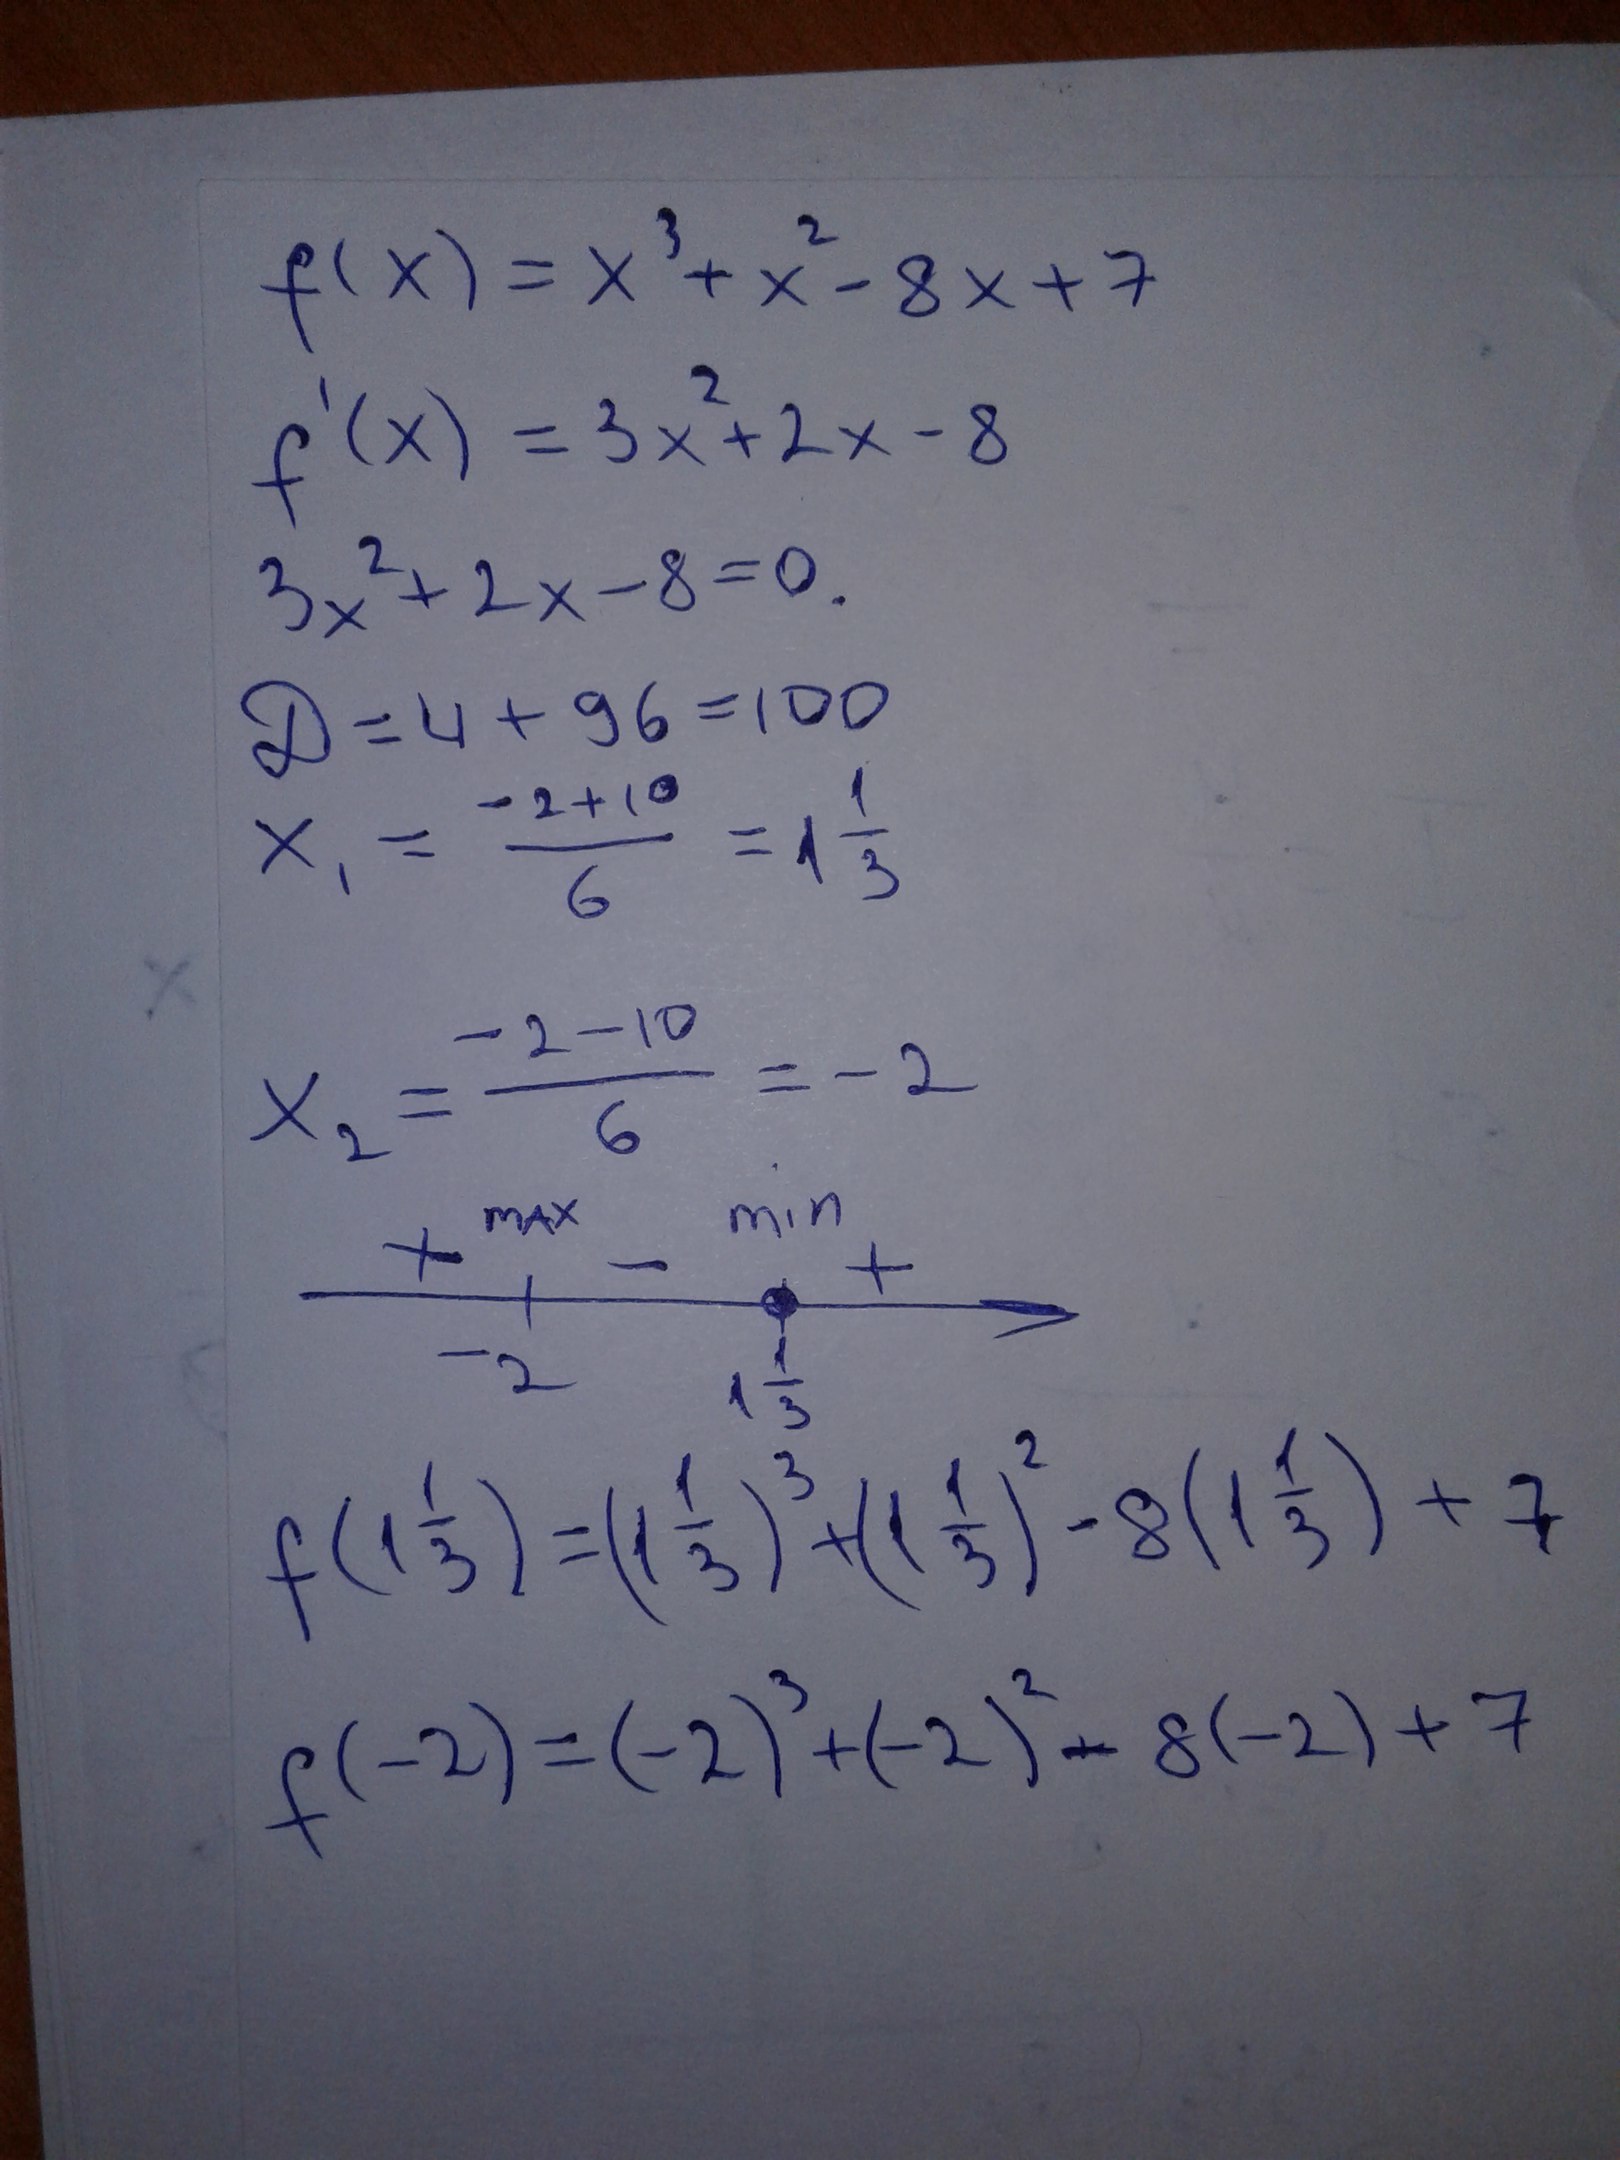 f(x) = x³ + x² - 8x + 7
f'(x) = 3x² + 2x - 8
3x² + 2x - 8 = 0.
D = 4 + 96 = 100
x₁ = (-2+10)/6 = 1 1/3
x₂ = (-2-10)/6 = -2
max min
+ - +
-2 1 1/3
f(1 1/3) = (1 1/3)³ + (1 1/3)² - 8(1 1/3) + 7
f(-2) = (-2)³ + (-2)² - 8(-2) + 7